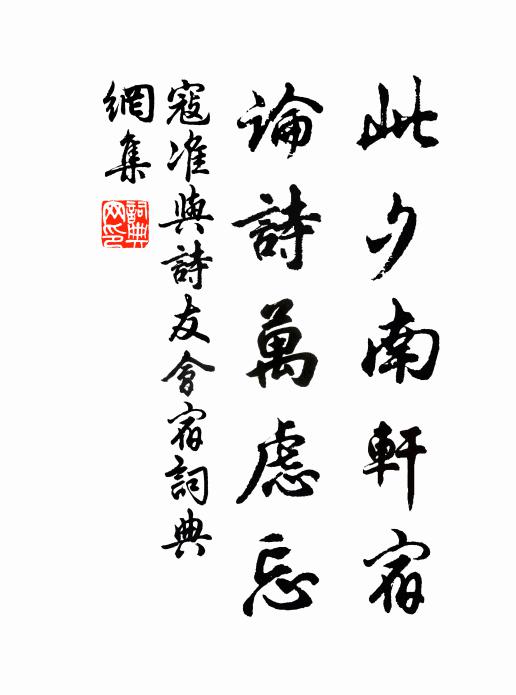 此夕南軒宿
論詩萬慮忘
寇准與詩友會宿詞典
網集
詞典網印